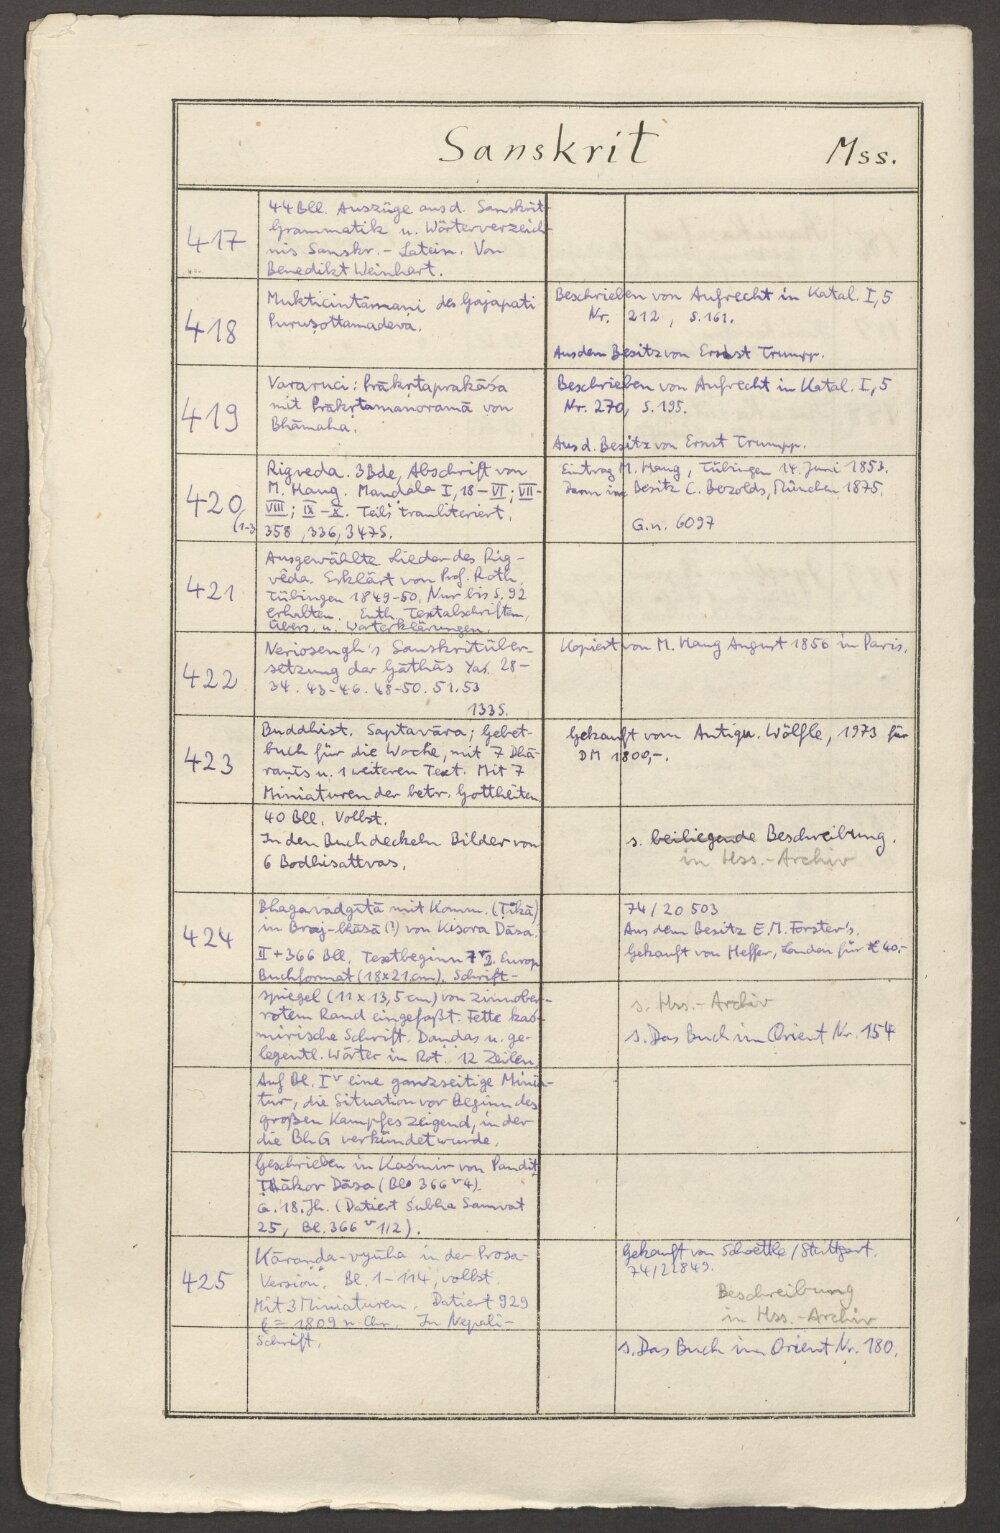 Sanskrit Mss.
417
44 Bll. Auszüge aus d. Sanskrit-
Grammatik u. Wörterverzeich-
nis Sanskr. - Latein. Von
Benedikt Weinhart.
418
Mukticintāmani des Gajapati
Puruṣottamadeva.
Beschrieben von Aufrecht in Katal. I,5
Nr. 212, S. 161.
Aus dem Besitz von Ernst Trumpp.
419
Vararuci: Prākṛtaprakāśa
mit Prākṛtamanoramā von
Bhāmaha.
Beschrieben von Aufrecht in Katal. I,5
Nr. 270, S. 195.
Aus d. Besitz von Ernst Trumpp.
420
(1-3
Rigveda. 3 Bde, Abschrift von
M. Haug. Mandala I, 18 - VI; VII-
VIII; IX - X. Teils transliteriert.
358, 336, 347 S.
Eintrag M. Haug, Tübingen 14. Juni 1853.
Dann im Besitz C. Bezolds, München 1875.
G.n. 6097
421
Ausgewählte Lieder des Rig-
vēda. Erklärt von Prof. Roth.
Tübingen 1849-50. Nur bis S. 92
erhalten. Enth. Textabschriften,
Übers. u. Worterklärungen.
422
Neriosengh's Sanskritüber-
setzung der Gāthās Yas. 28-
34. 43-46. 48-50. 51. 53
133 S.
Kopiert von M. Haug August 1856 in Paris.
423
Buddhist. Saptavāra; Gebet-
buch für die Woche, mit 7 Dhā-
raṇīs u. 1 weiteren Text. Mit 7
Miniaturen der betr. Gottheiten
Gekauft vom Antiqu. Wölfle, 1973 für
DM 1800,-.
40 Bll. Vollst.
In den Buchdeckeln Bilder von
6 Bodhisattvas.
s. beiliegende Beschreibung.
in Hss.-Archiv
424
Bhagavadgītā mit Komm. (Ṭīkā)
in Braj-bhāṣā (!) von Kisora Dāsa.
II + 366 Bll. Textbeginn 7v2. Europ.
Buchformat (18x21 cm). Schrift-
74/20 503
Aus dem Besitz E.M. Forster's.
Gekauft von Heffer, London für £ 40.-
spiegel (11 x 13,5 cm) von zinnober-
rotem Rand eingefaßt. Fette kaś-
mirische Schrift. Daṇḍas u. ge-
legentl. Wörter in Rot. 12 Zeilen
s. Hss.-Archiv
s. Das Buch im Orient Nr. 154
Auf Bl. Iv eine ganzseitige Minia-
tur, die Situation vor Beginn des
großen Kampfes zeigend, in der
die BhG verkündet wurde.
Geschrieben in Kaśmir von Pandit
Ṭhākor Dāsa (Bl. 366v4).
18. Jh. (Datiert Śubha Samvat
25, Bl. 366v 1/2).
425
Kāraṇḍa-vyūha in der Prosa-
Version. Bl. 1-114, vollst.
Mit 3 Miniaturen. Datiert 929
(= 1809 n. Chr. In Nepali-
Gekauft von Schoettle / Stuttgart.
74/21849.
Beschreibung
in Hss.-Archiv
Schrift.
s. Das Buch im Orient Nr. 180.